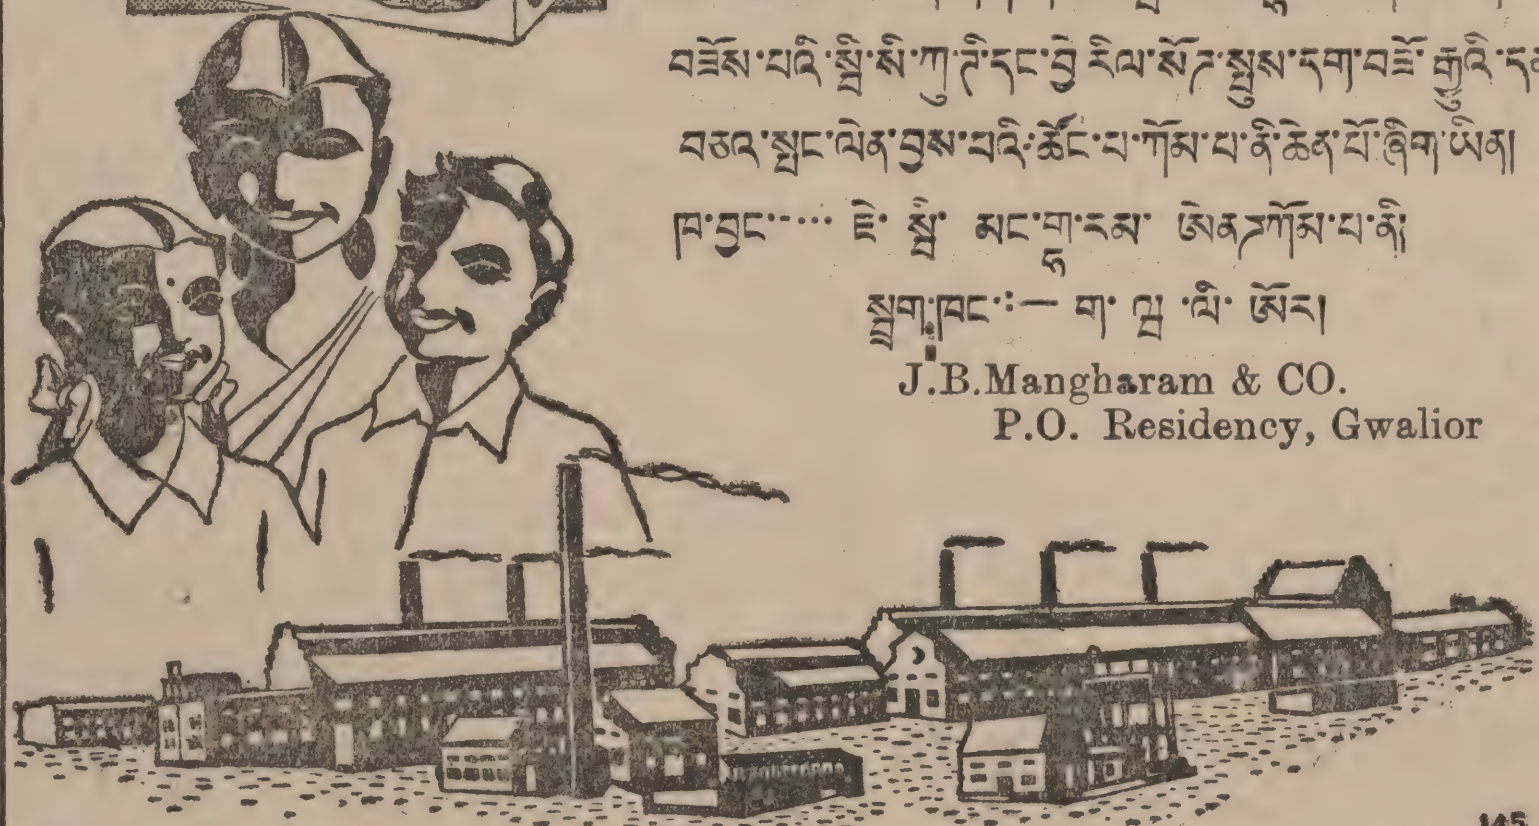 བཟོས་པའི་སྤྲི་སི་ཀུ་ཊི་དང་བྱེ་རིལ་སོཊ་སྤུས་དག་བཟོ་རྒྱུའི་
བཅའ་སྤང་ལེན་བྱས་པའི་ཚོང་པ་ཀོམ་པ་ནི་ཆེན་པོ་ཞིག་ཡིན།
ཁ་བྱང་···· ཇེ་ སྦི་ མང་གྷ་རམ་ ཨེནཌཀོམ་པ་ནི།
སྦྲག་ཁང་ཿ— ག་ ལྦ་ ལི་ ཨོར།
J.B.Mangharam & CO.
P.O. Residency, Gwalior
145